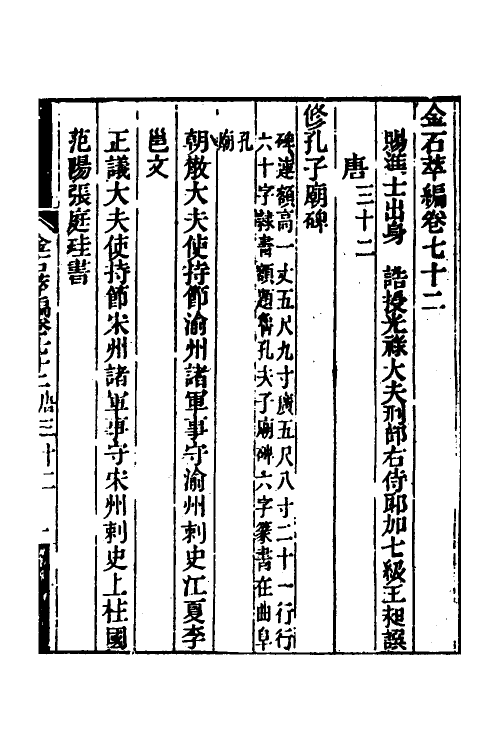 金石萃編卷七十二
賜進士出身　誥授光祿大夫刑部右侍郎加七級王昶譔
唐三十二
修孔子廟碑
碑連額高一丈五尺九寸廣五尺八寸二十一行行
六十字隸書額題魯孔夫子廟碑六字篆書在曲阜
孔
廟
朝散大夫使持節渝州諸軍事守渝州刺史江夏李
邕文
正議大夫使持節宋州諸軍事守宋州刺史上柱國
范陽張庭珪書
金石萃編卷七十二唐三十二　一